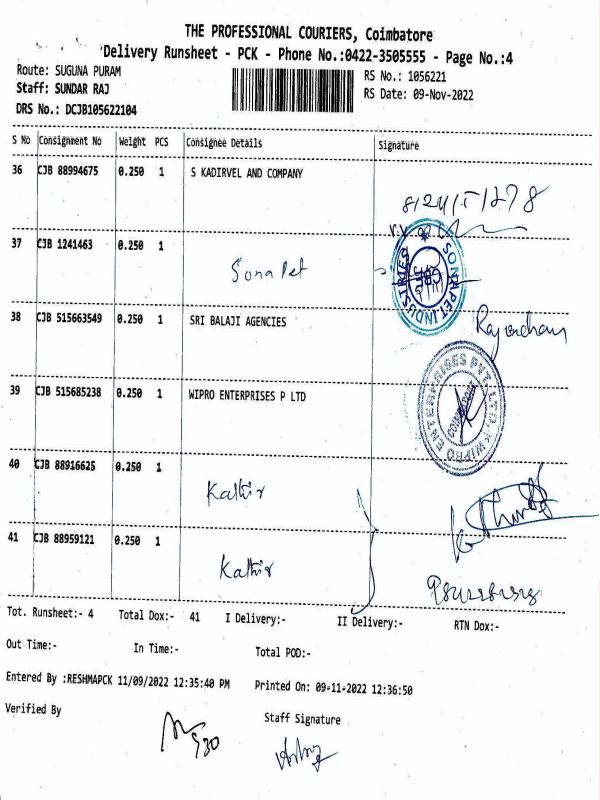 THE PROFESSIONAL COURIERS, Coimbatore
Delivery Runsheet - PCK - Phone No.:0422-3505555 - Page No.:4
Route: SUGUNA PURAM
RS No.: 1056221
Staff: SUNDAR RAJ
RS Date: 09-Nov-2022
DRS No.: DCJB105622104
S No Consignment No Weight PCS Consignee Details Signature
36 CJB 88994675 0.250 1 S KADIRVEL AND COMPANY
37 CJB 1241463 0.250 1 Sona Pet
SONA PET INDUSTRIES
CBE
38 CJB 515663549 0.250 1 SRI BALAJI AGENCIES
39 CJB 515685238 0.250 1 WIPRO ENTERPRISES P LTD
WIPRO ENTERPRISES PVT. LTD.
COIMBATORE
40 CJB 88916625 0.250 1 Kathir
41 CJB 88959121 0.250 1 Kathir
Tot. Runsheet:- 4 Total Dox:- 41 I Delivery:- II Delivery:- RTN Dox:-
Out Time:- In Time:- Total POD:-
Entered By :RESHMAPCK 11/09/2022 12:35:40 PM Printed On: 09-11-2022 12:36:50
Verified By Staff Signature